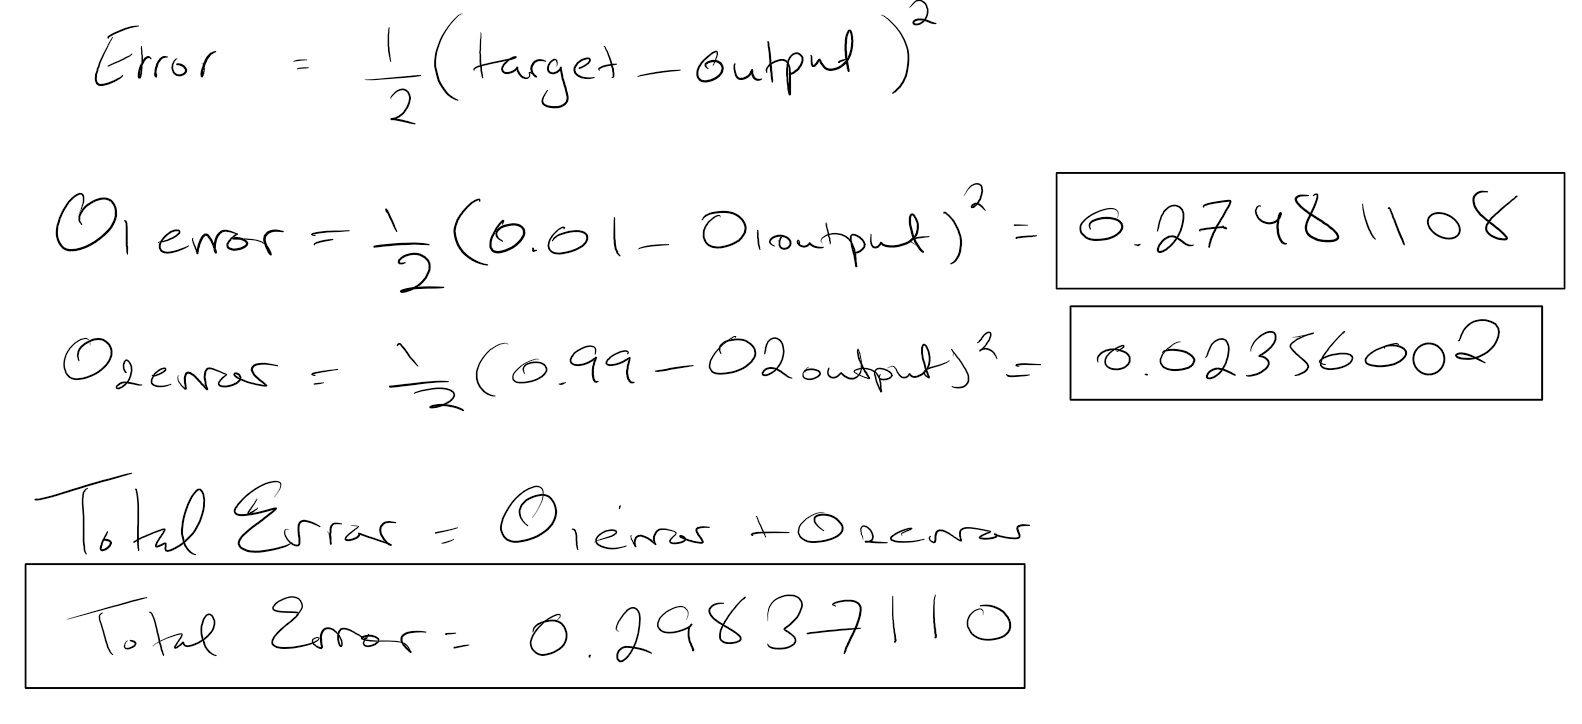 Error = 1/2 (target - output)²
O1 error = 1/2 (0.01 - O1output)² = 0.27481108
O2error = 1/2 (0.99 - O2output)² = 0.02356002
Total Error = O1error + O2error
Total Error = 0.29837110